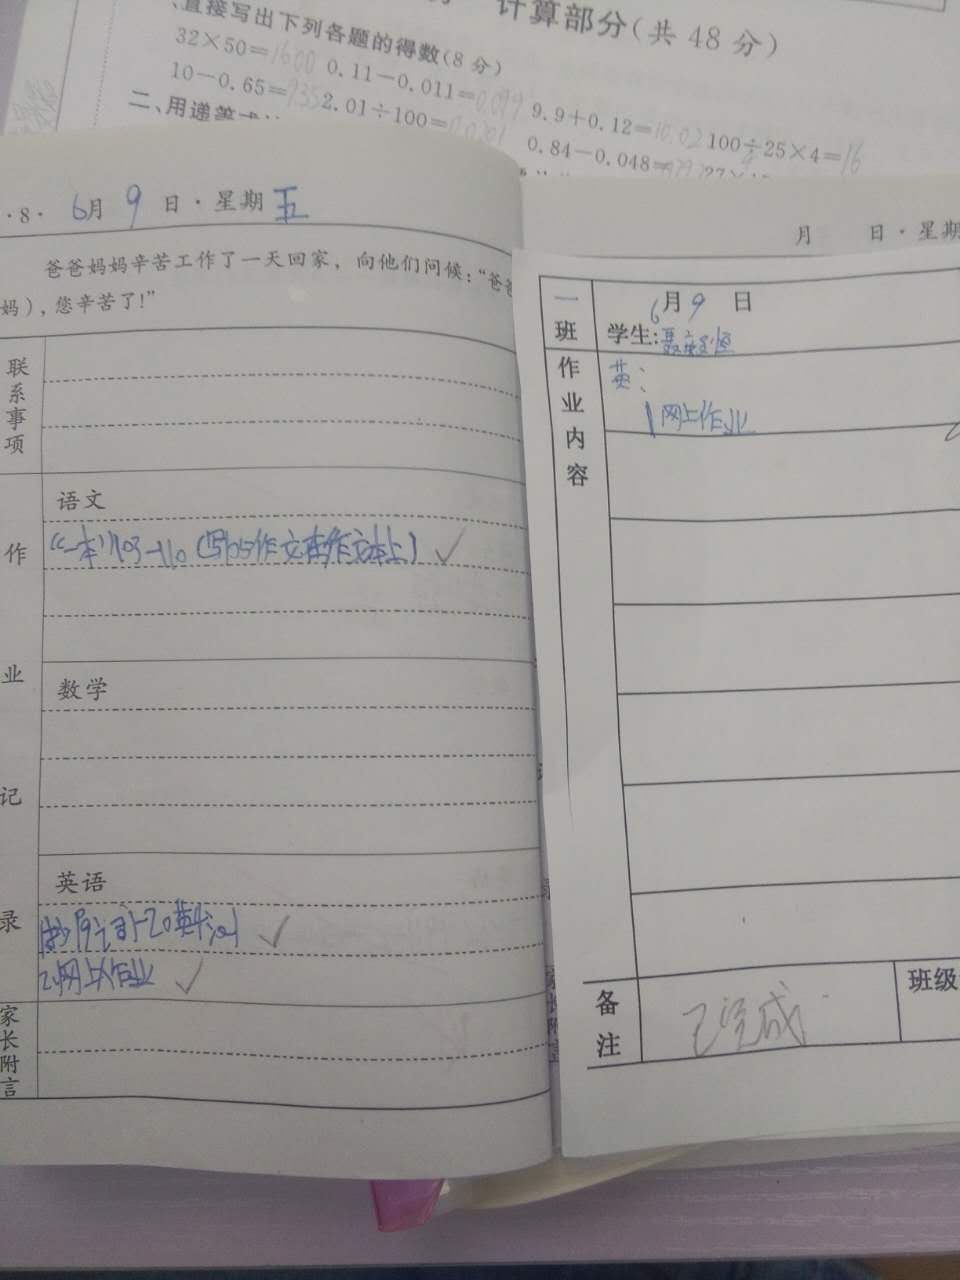 计算部分(共 48 分)
、直接写出下列各题的得数(8 分)
32×50=1600 0.11-0.011=0.099 9.9+0.12=10.02 100÷25×4=16
10-0.65=9.35 2.01÷100=0.0201 0.84-0.048=
二、用递等式
·8· 6月 9 日·星期 五
爸爸妈妈辛苦工作了一天回家，向他们问候：“爸爸
妈)，您辛苦了!”
联系事项
作业记录
语文
“一本”103-110(写105作文在作文本上)✓
数学
英语
✓
2.网上作业 ✓
家长附言
月 日·星期
一班
6月9 日
学生:
作业内容
英:
1网上作业
备注
已完成
班级